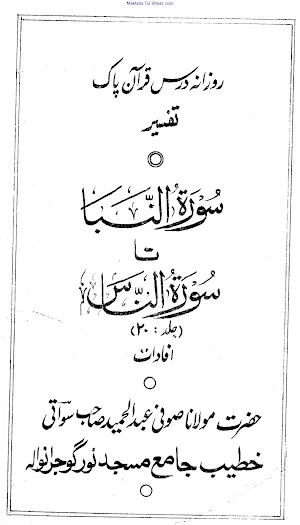 Maktaba Tul Ishaat.com
روزانہ درس قرآن پاک
تفسیر
سُوْرَةُ النَّبَا
تا
سُوْرَةُ النَّاس
(جلد : ۲۰)
افادات
حضرت مولانا صوفی عبد الحمید صاحب سواتی
خطیب جامع مسجد نور گوجرانوالہ